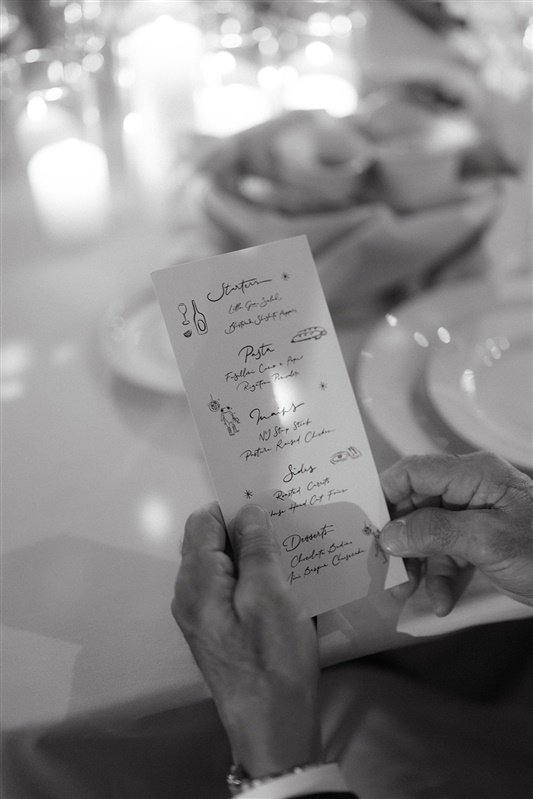 Starters
Little Gem Salad
Blistered Shishito Peppers
Pasta
Fusilloni Cacio e Pepe
Rigatoni Pomodoro
Mains
NY Strip Steak
Pasture Raised Chicken
Sides
Roasted Carrots
House Hand Cut Fries
Desserts
Chocolate Budino
Mini Basque Cheesecake